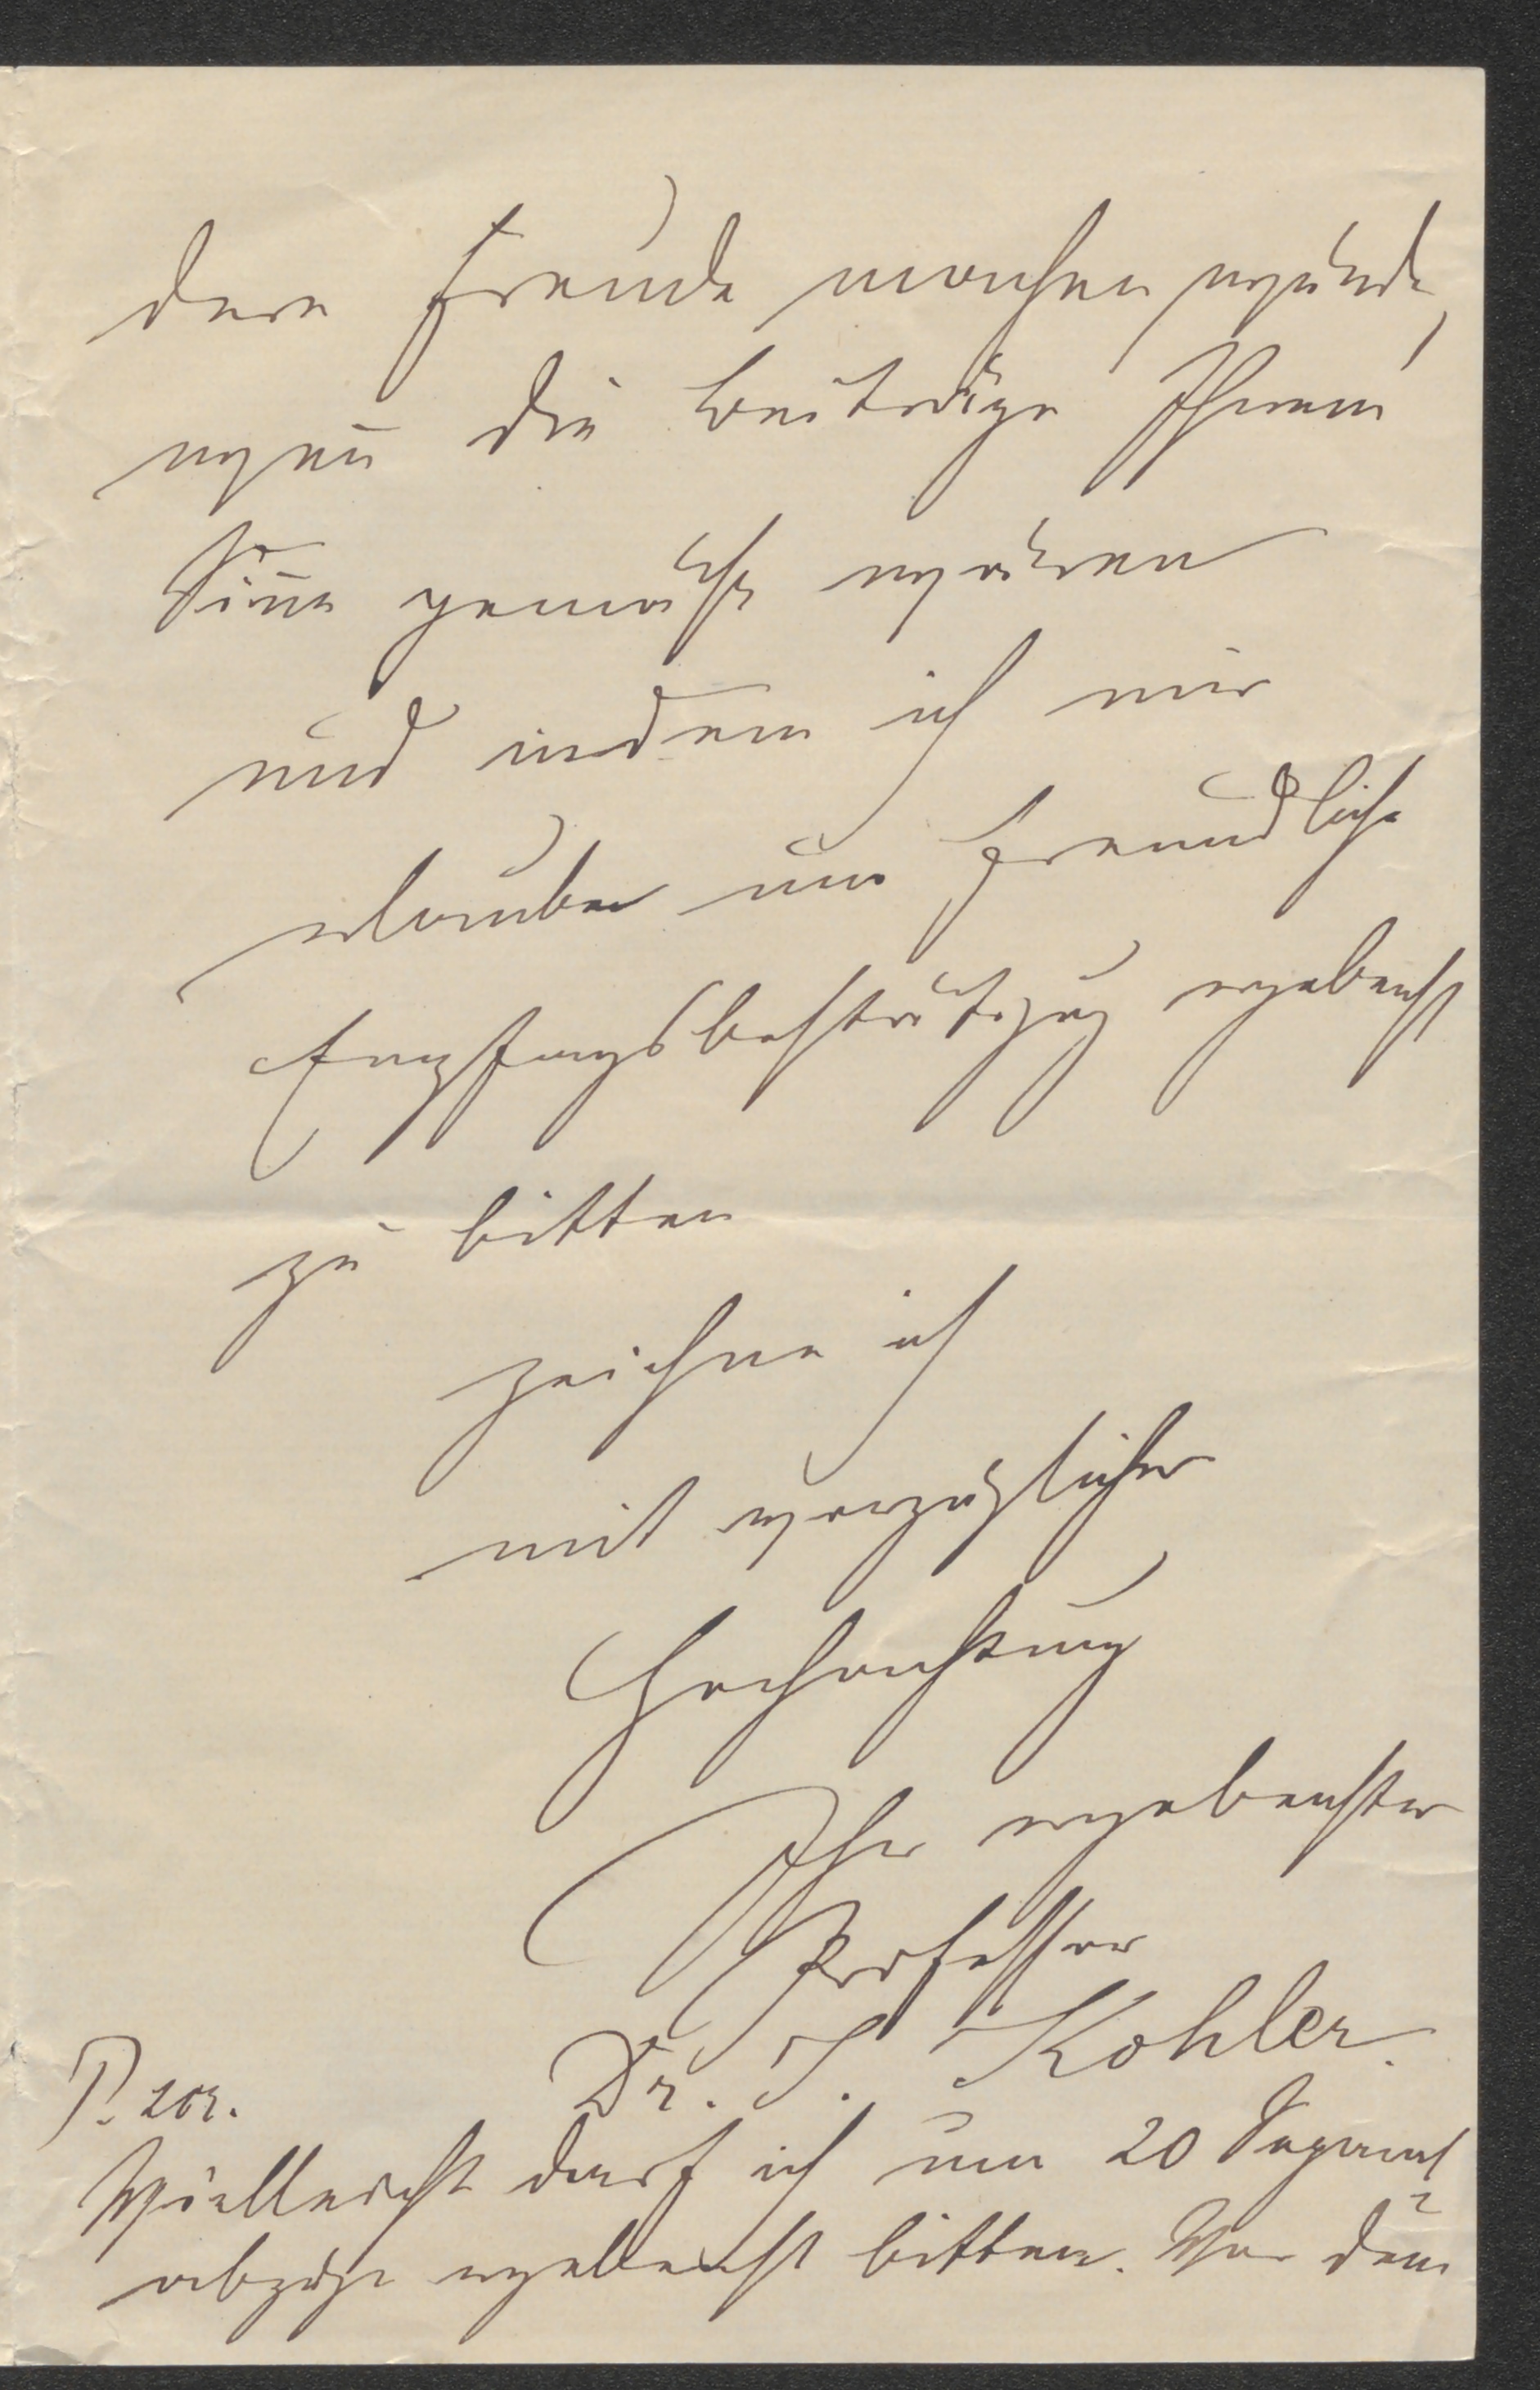 dere Freude machen würde,
wenn die Beiträge Ihrem
Sinne gemäß wären
und indem ich mir
erlaube um freundliche
Empfangsbestätigung ergebenst
zu bitten
zeichne ich
mit vorzüglicher
Hochachtung
Ihr ergebenster
Professor
Dr. J. Kohler.
P. scr.
Vielleicht darf ich um 20 Separat-
abzüge ergebenst bitten. Vor dem